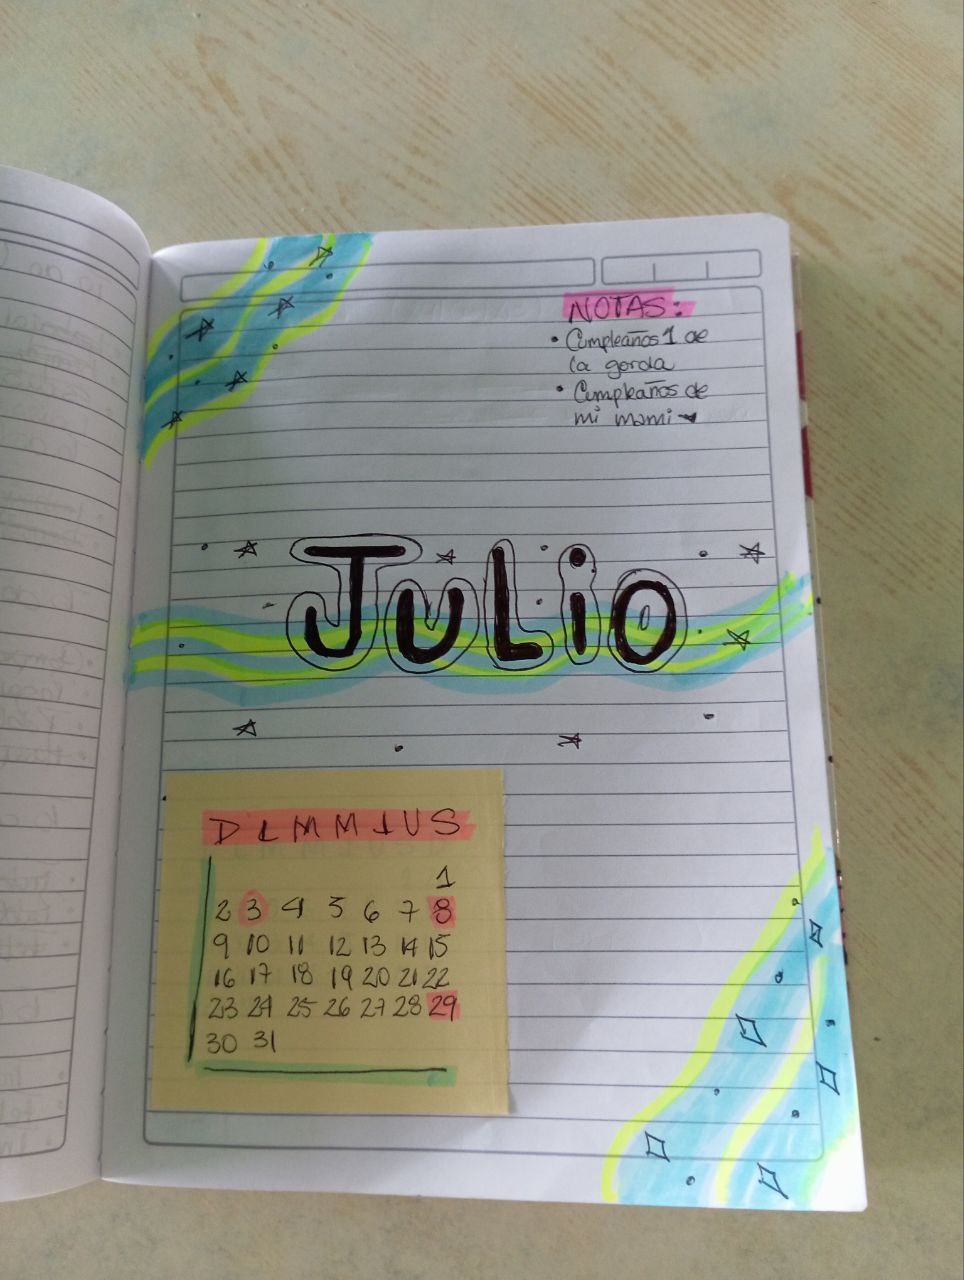 NOTAS:
• Cumpleaños 1 de
la gorda
• Cumpleaños de
mi mami
JULiO
D L M M J V S
1
2 3 4 5 6 7 8
9 10 11 12 13 14 15
16 17 18 19 20 21 22
23 24 25 26 27 28 29
30 31